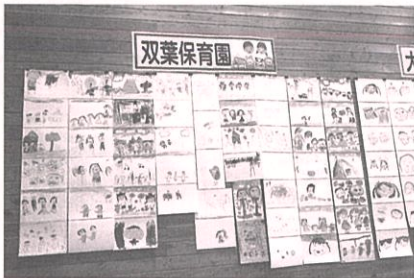 双葉保育園